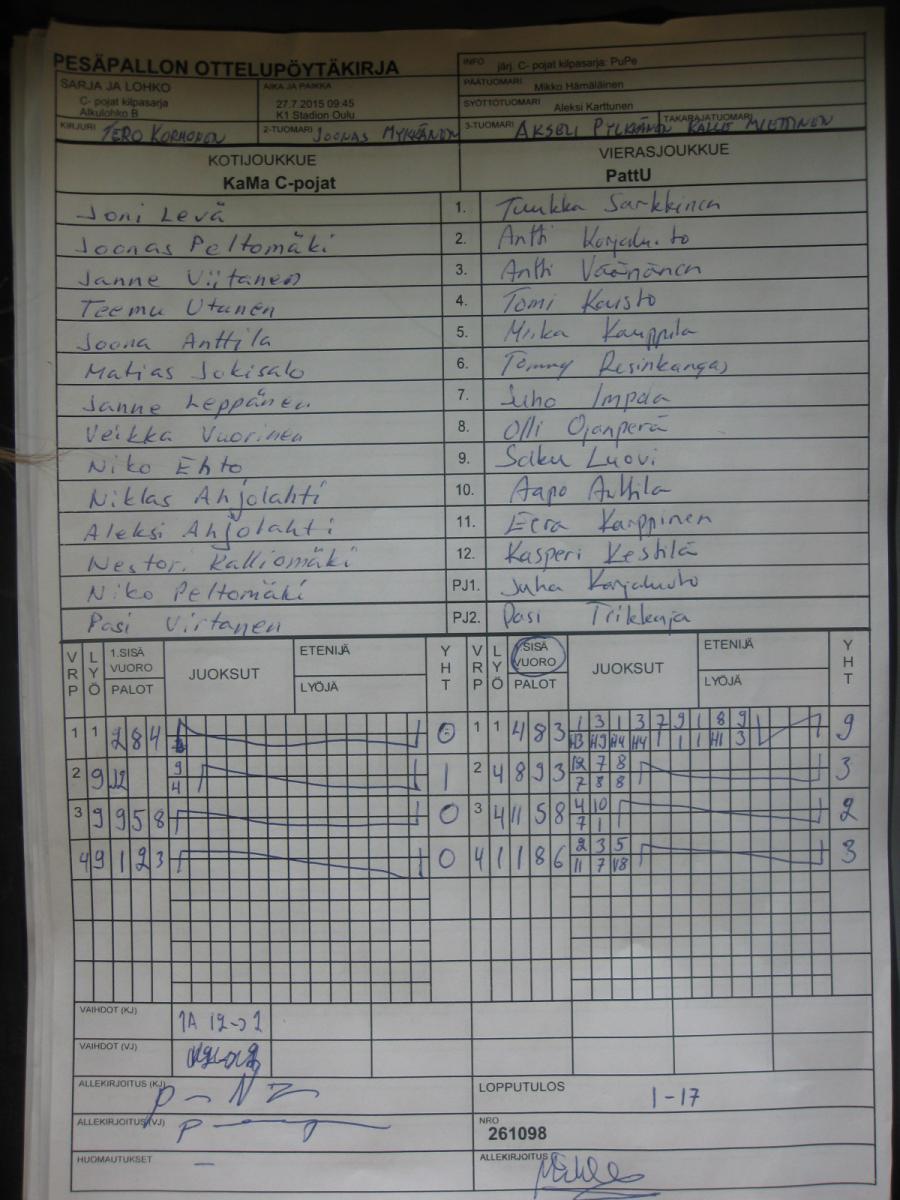 PESÄPALLON OTTELUPÖYTÄKIRJA
INFO järj. C- pojat kilpasarja: PuPe
PÄÄTUOMARI Mikko Hämäläinen
SARJA JA LOHKO
C- pojat kilpasarja
Alkulohko B
AIKA JA PAIKKA
27.7.2015 09:45
K1 Stadion Oulu
SYÖTTÖTUOMARI Aleksi Karttunen
KIRJURI TERO KORHONEN 2-TUOMARI JOONAS MYKKÄNEN 3-TUOMARI AKSELI PYLKKÄNEN TAKARAJATUOMARI KALLE MIETTINEN
KOTIJOUKKUE VIERASJOUKKUE
KaMa C-pojat PattU
Joni Levä 1. Tuukka Sarkkinen
Joonas Peltomäki 2. Antti Korjaluoto
Janne Viitanen 3. Antti Väänänen
Teemu Utunen 4. Tomi Kaisto
Joona Anttila 5. Miika Kauppila
Matias Jokisalo 6. Tommy Resinkangas
Janne Leppänen 7. Juho Impola
Veikka Vuorinen 8. Olli Ojanperä
Niko Ehto 9. Saku Luovi
Niklas Ahjolahti 10. Aapo Anttila
Aleksi Ahjolahti 11. Eera Karppinen
Nestori Kalliomäki 12. Kasperi Kestilä
Niko Peltomäki PJ1. Juha Korjaluoto
Pasi Virtanen PJ2. Pasi Trikkaja
VRP LYÖ 1.SISÄ VUORO PALOT JUOKSUT ETENIJÄ LYÖJÄ YHT VRP LYÖ 1.SISÄ VUORO PALOT JUOKSUT ETENIJÄ LYÖJÄ YHT
1 1 2 8 4 0 1 1 4 8 3 1 3 1 3 7 9 1 8 9 9
H3 H9 H4 H4 1 1 1 H1 3
2 9 12 9 1 2 4 8 9 3 12 7 8 3
4 7 8 8
3 9 9 5 8 0 3 4 11 5 8 4 10 2
7 1
4 9 1 2 3 0 4 1 1 8 6 2 3 5 3
11 7 V8
VAIHDOT (KJ) 1A 12->2
VAIHDOT (VJ)
ALLEKIRJOITUS (KJ) LOPPUTULOS 1-17
ALLEKIRJOITUS (VJ) NRO
261098
HUOMAUTUKSET – ALLEKIRJOITUS